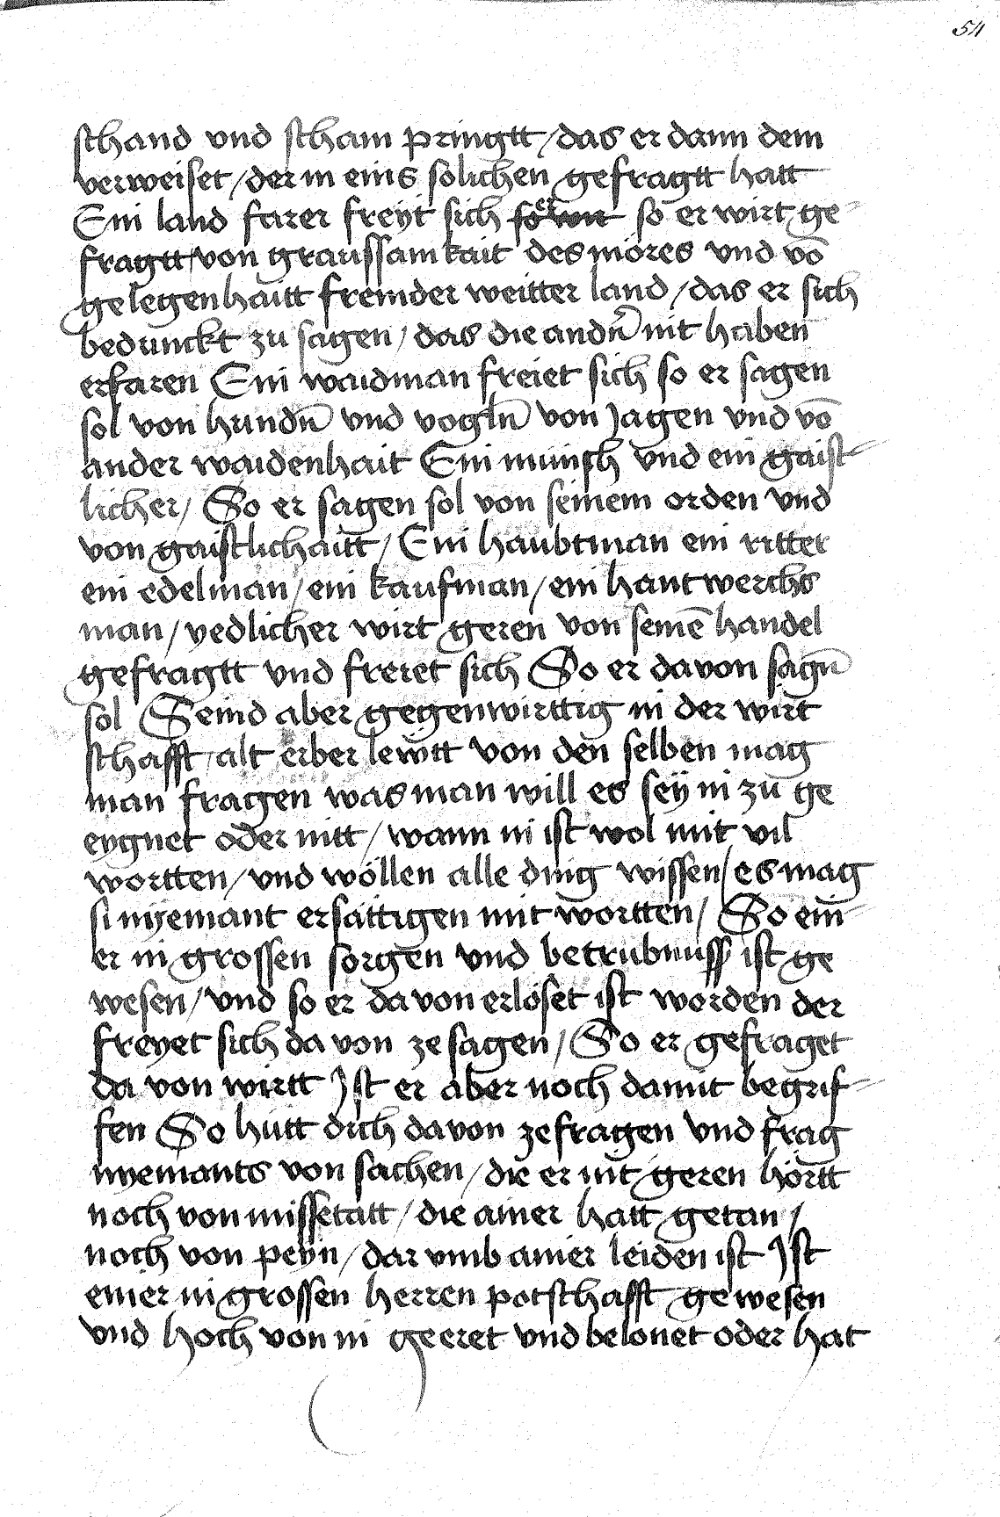 54
schand vnd scham pringtt / das er dann dem
verweiset / der in eins solichen gefragtt hatt
Ein land farer freyt sich so er wirt ge-
fragtt von graussamkait des möres vnd vō
gelegenhaitt fremder weitter land / das er sich
bedunckt zu sagen / das die andn̄ nit haben
erfaren Ein waidman freiet sich so er sagen
sol von hundn̄ vnd vogln̄ von Jagen vnd vō
ander waidenhait Ein münch vnd ein gaist-
licher / So er sagen sol von seinem orden vnd
von gaistlichaitt / Ein haubtman ein ritter
ein edelman / ein kaufman / ein hantwerchs
man / yedlicher wirt geren von seinē handel
gefragtt vnd freiet sich So er davon sagn̄
sol Seind aber gegenwirttig in der wirt
schafft / alt erber lewtt von den selben mag
man fragen was man will es sey in zu ge
eygnet oder nitt / wann in ist wol mit vil
wortten / vnd wöllen alle ding wissen / es mag
si nyemant ersättigen mit wortten / So ein-
er in grossen sorgen vnd betrubnuss ist ge
wesen / vnd so er da von erlöset ist worden der
freyet sich da von ze sagen / So er gefraget
da von wirtt Jst er aber noch damit begrif-
fen So hütt dich davon zefragen vnd frag
nyemants von sachen / die er nit geren hörtt
noch von missetatt / die ainer hatt getan /
noch von peyn / dar vmb ainer leiden ist Jst
einer in grossen herren potschafft gewesen
vnd hoch von in geeret vnd belonet oder hat